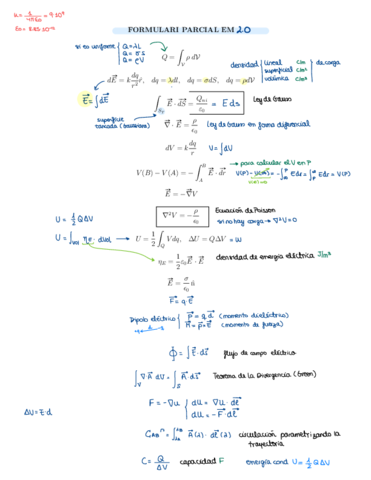 K = 1/4πε₀ = 9·10⁹
ε₀ = 8.85·10⁻¹²
FORMULARI PARCIAL EM 2.0
si es uniforme { Q = λL
Q = σS
Q = ρV
Q = ∫_V ρ dV
densidad { lineal C/m
superficial C/m²
volúmica C/m³ } de carga
dE⃗ = k dq/r² r̂, dq = λdl, dq = σdS, dq = ρdV
E⃗ = ∫dE⃗
∫ E⃗ · dS⃗ = Q_int/ε₀ = E ds Ley de Gauss
superficie
cerrada (gaussiana)
∇⃗ · E⃗ = ρ/ε₀ Ley de Gauss en forma diferencial
dV = k dq/r V = ∫dV
para calcular el V en P
V(B) − V(A) = − ∫_A^B E⃗ · dr⃗
E⃗ = −∇⃗V
∇²V = − ρ/ε₀ Ecuación de Poisson
si no hay carga → ∇²V = 0
U = 1/2 QΔV
U = ∫_vol η_E · dvol → U = 1/2 ∫_Q V dq, ΔU = QΔV = W
η_E = 1/2 ε₀ E⃗ · E⃗ densidad de energía eléctrica J/m³
E⃗ = σ/ε₀ û
F⃗ = q E⃗
Dipolo eléctrico { p⃗ = q d⃗ (momento dieléctrico)
(momento de fuerza)
Φ = ∫ E⃗ · ds⃗ flujo de campo eléctrico
∫_V ∇⃗ A⃗ dV = ∫_S A⃗ · ds⃗ Teorema de la Divergencia (Green)
F = −∇U { dU = ∇U · dl⃗
dU = −F⃗ dl⃗
ΔU = Z·d
circulación parametrizando la
trayectoria
C = Q/ΔV capacidad F energía cond U = 1/2 QΔV